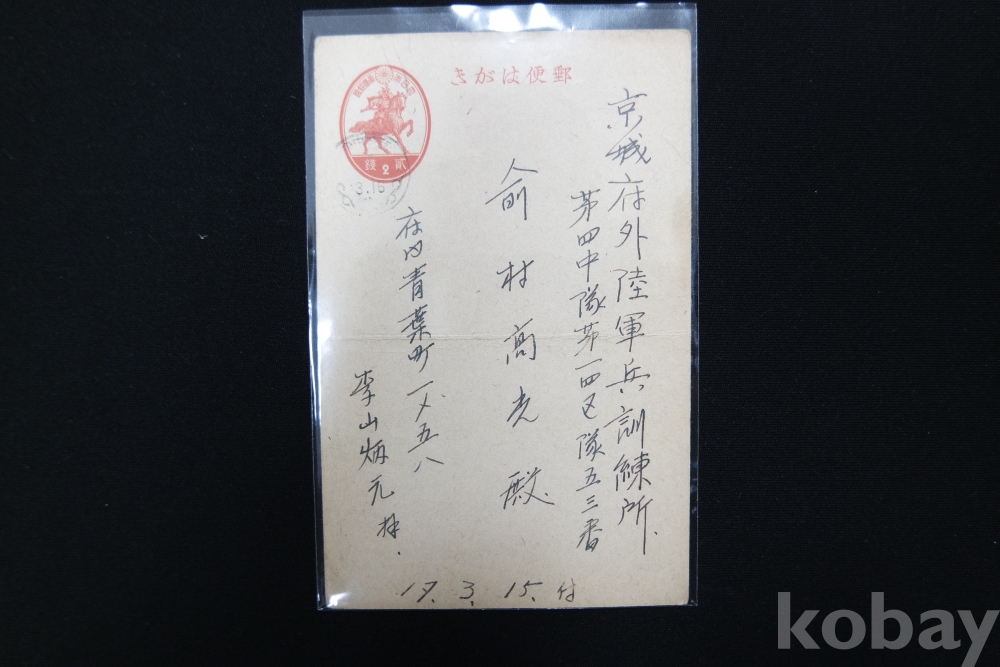 郵便はがき
京城府外陸軍兵訓練所
第四中隊第一四区隊五三番
俞村高光殿
府内青葉町一ノ五八
李山炳元拜.
17. 3. 15. 付
貳 2 錢
3.15
kobay